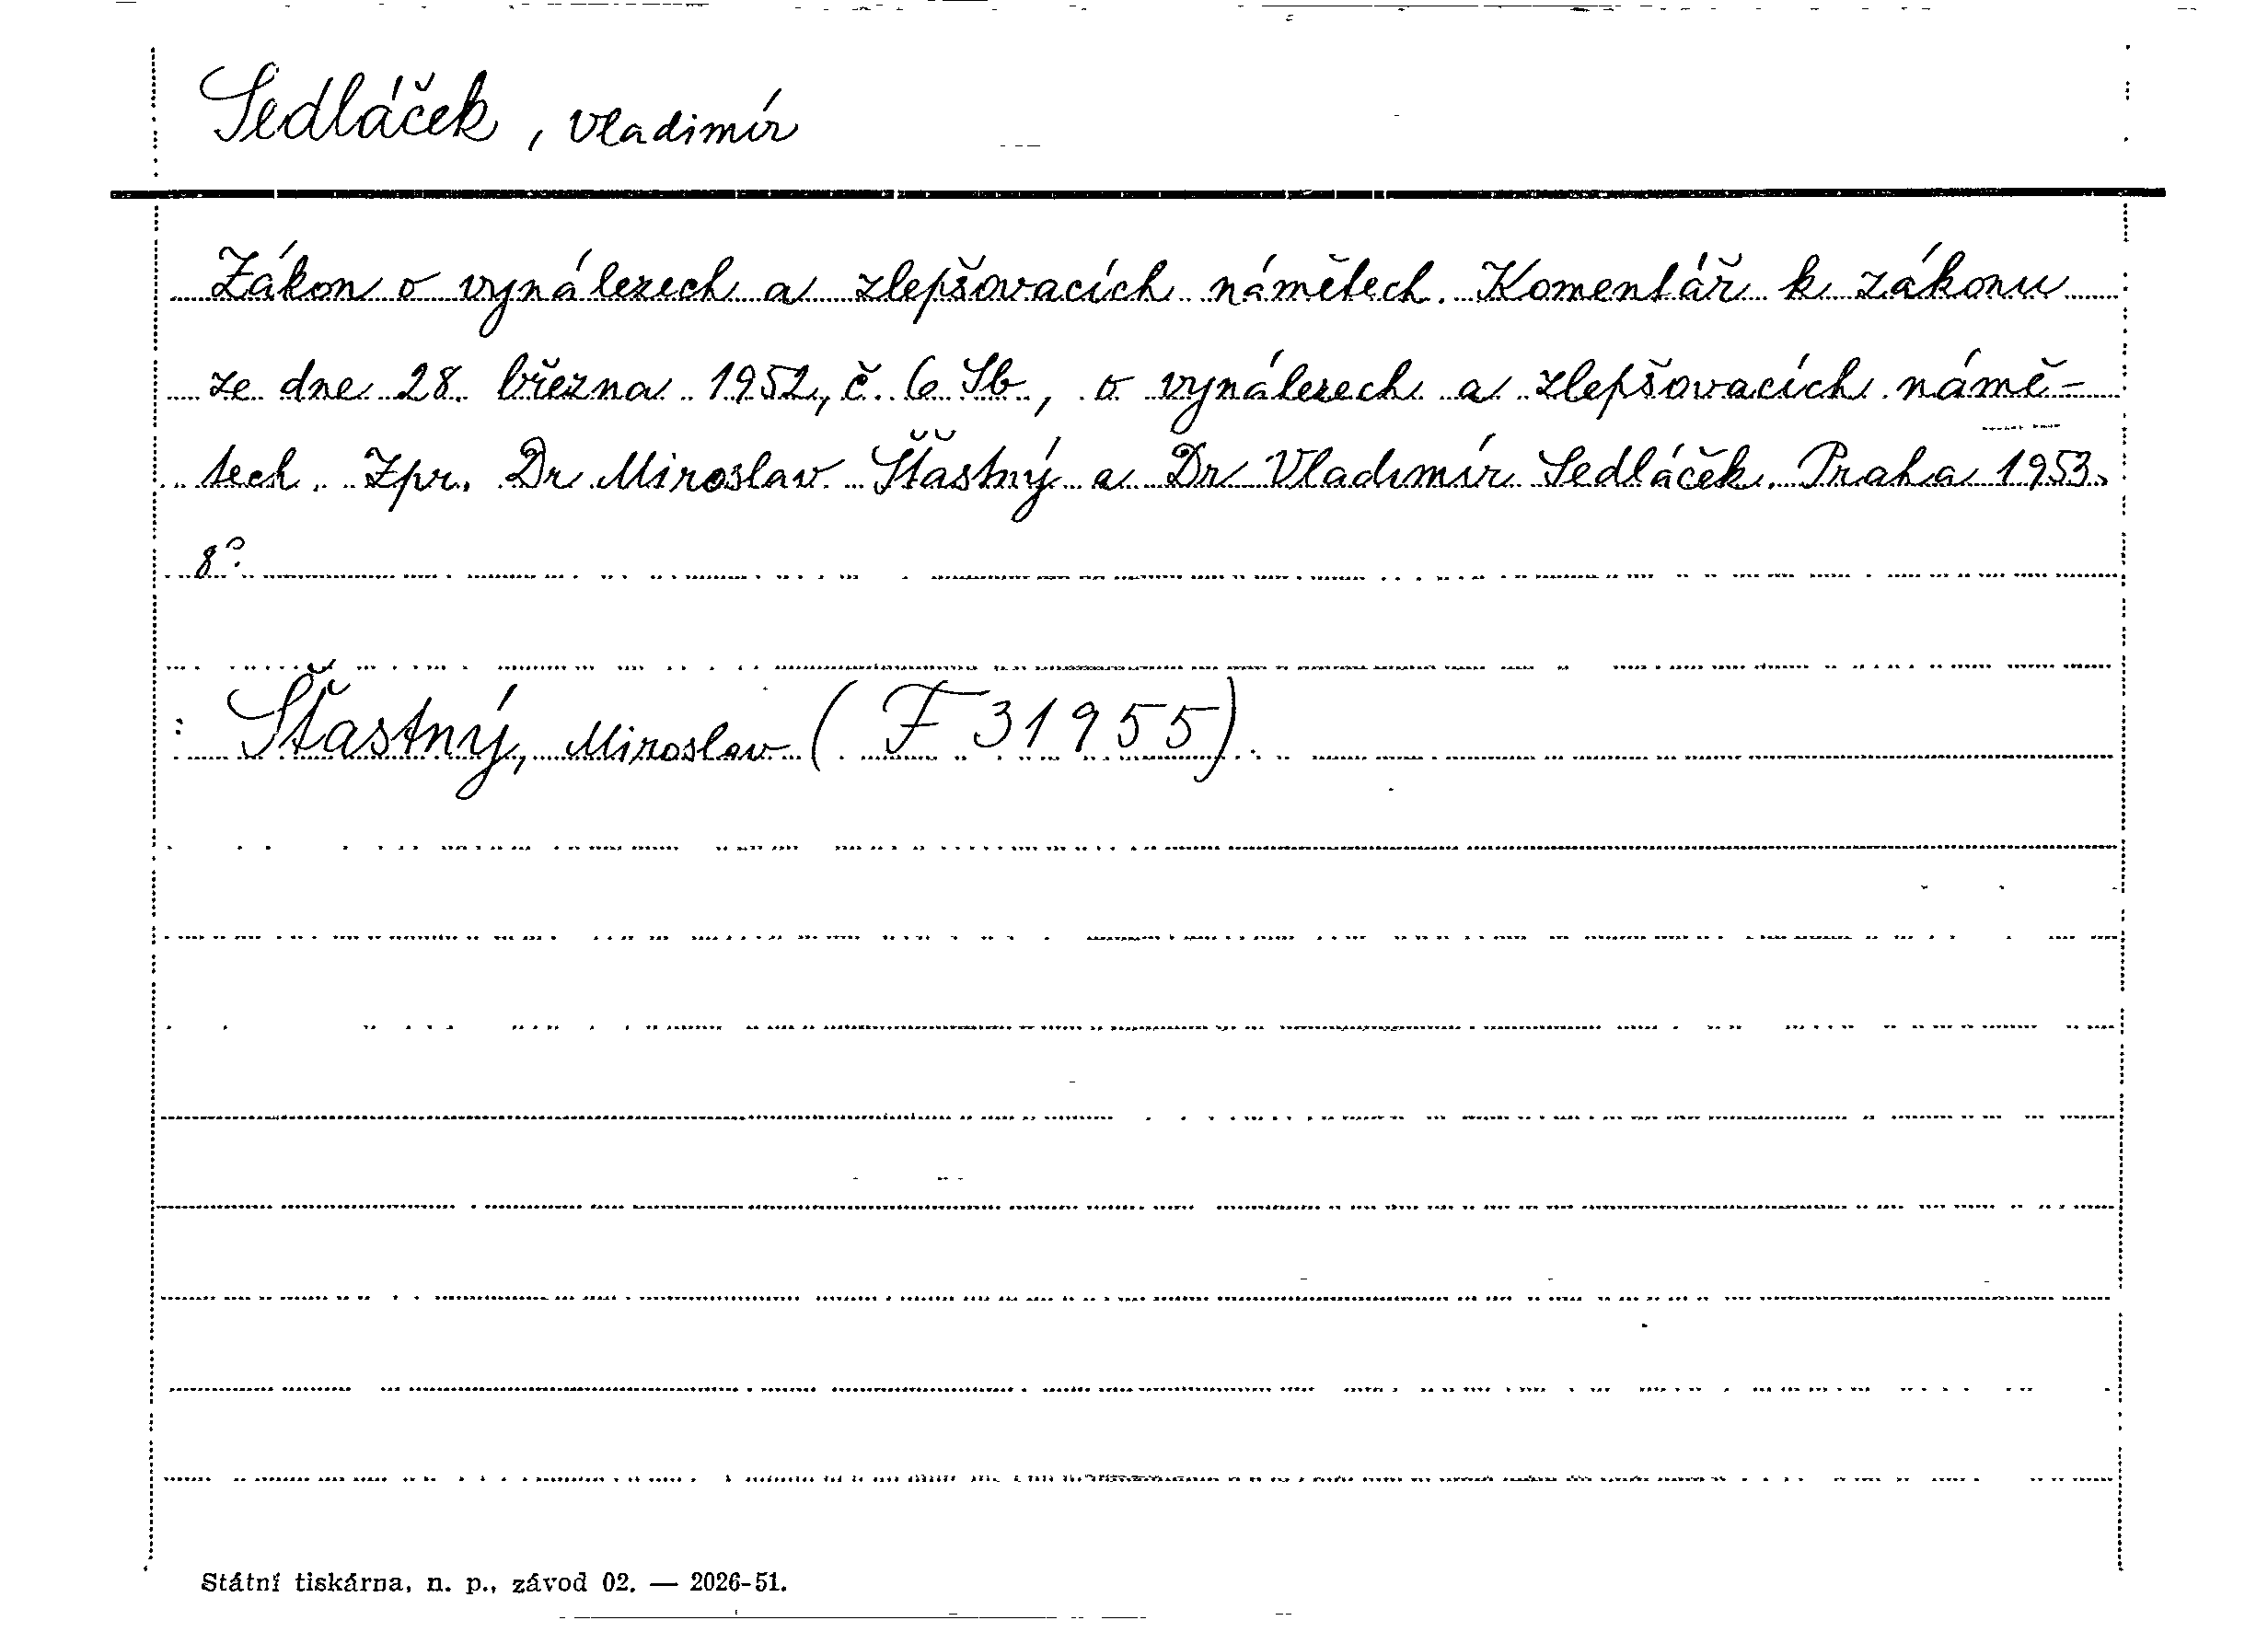 Sedláček, Vladimír
Zákon o vynálezech a zlepšovacích námětech. Komentář k zákonu
ze dne 28. března 1952, č. 6 Sb., o vynálezech a zlepšovacích námě-
tech. Zpr. Dr Miroslav Šťastný a Dr Vladimír Sedláček. Praha 1953.
8°.
: Šťastný, Miroslav (F 31955).
Státní tiskárna, n. p., závod 02. — 2026-51.